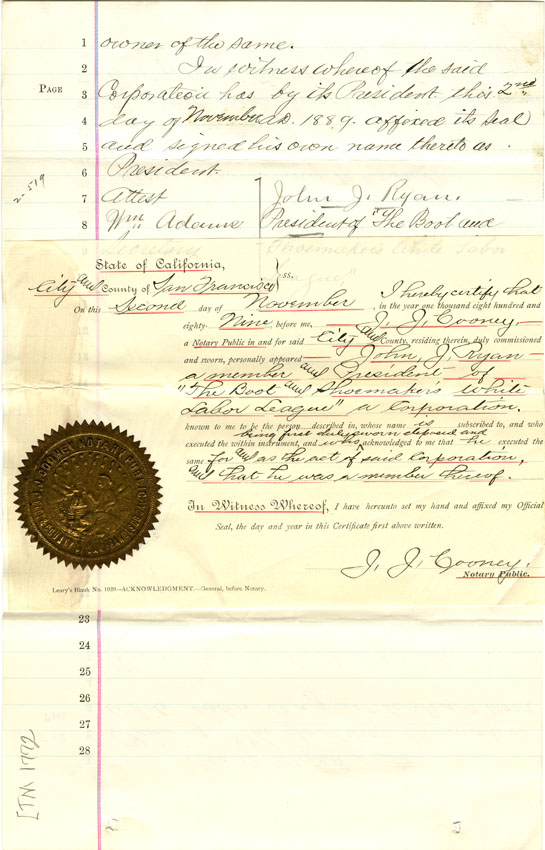 1 owner of the same.
2 In witness whereof the said
PAGE 3 Corporation has by its President this 2nd
4 day of November A.D. 1889. affixed its seal
5 and signed his own name thereto as
6 President.
2-519
7 Attest John J. Ryan.
8 Wm Adams President of "The Boot and
Secretary Shoemaker's White Labor
League"
State of California,
City and County of San Francisco } ss,
I hereby certify that
On this Second day of November in the year one thousand eight hundred and
eighty- Nine before me, J. J. Cooney,
a Notary Public in and for said City and County, residing therein, duly commissioned
and sworn, personally appeared John J. Ryan
a member and President of
"The Boot and Shoemaker's White
Labor League" a Corporation.
known to me to be the person described in, whose name is subscribed to, and who
being first duly sworn deposed and
executed the within instrument, and who acknowledged to me that he executed the
same for and as the act of said Corporation,
and that he was a member thereof.
In Witness Whereof, I have hereunto set my hand and affixed my Official
Seal, the day and year in this Certificate first above written.
J. J. Cooney.
Notary Public.
Leary's Blank No. 1020—ACKNOWLEDGMENT.—General, before Notary.
23
24
25
26
27
28
[TM 1772